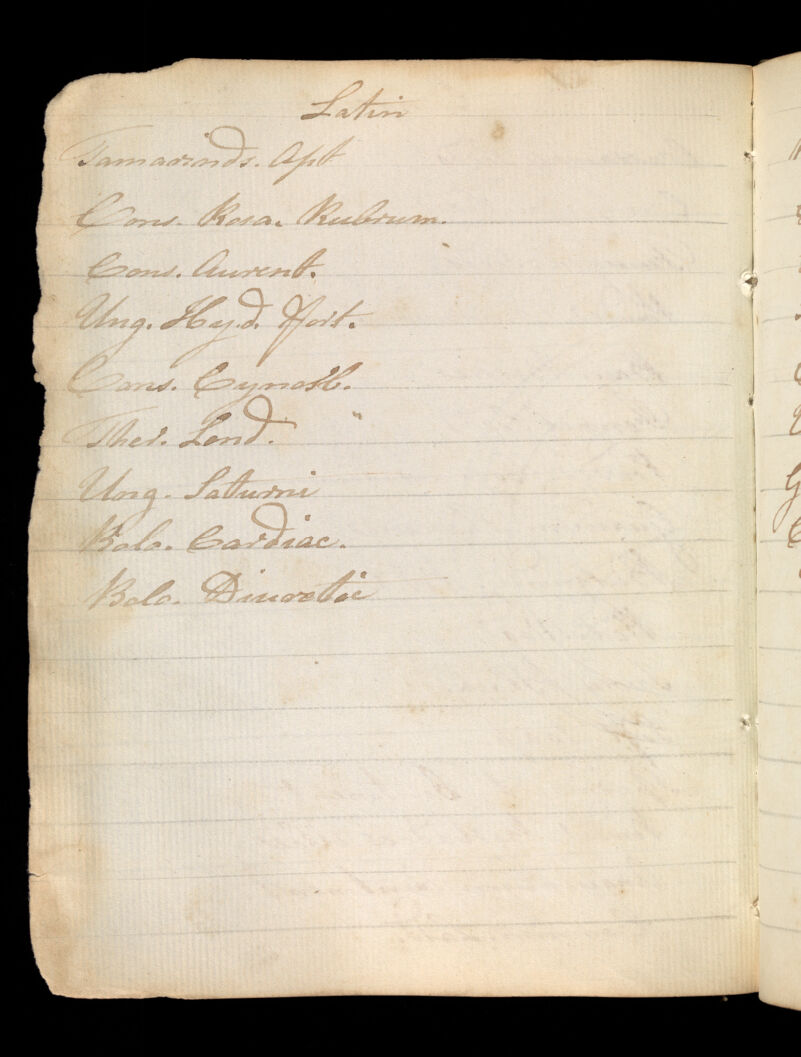 Latin
Tamarinds. Apt
Cons. Rosa. Rubrum.
Cons. Aurent.
Ung. Hyd. fort.
Cons. Cynosb.
Ther. Lond.
Ung. Saturni
Bolo. Cardiac.
Bolo. Diuretic